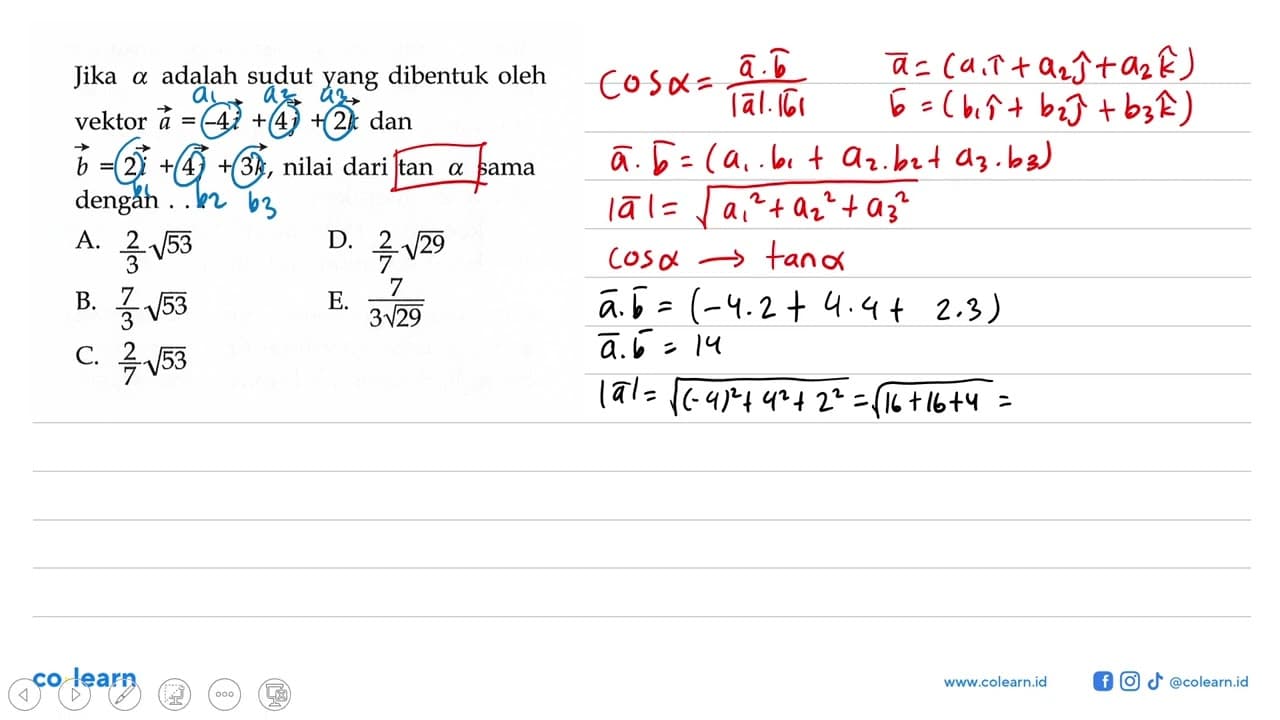 Jika α adalah sudut yang dibentuk oleh
a₁ a₂ a₃
vektor a⃗ = -4i⃗ + 4j⃗ + 2k⃗ dan
b⃗ = 2i⃗ + 4j⃗ + 3k⃗, nilai dari tan α sama
b₁ b₂ b₃
dengan . . .
A. 2/3 √53
B. 7/3 √53
C. 2/7 √53
D. 2/7 √29
E. 7/(3√29)
cos α = (a̅ . b̅)/(|a̅| . |b̅|)
a̅ = (a₁î + a₂ĵ + a₂k̂)
b̅ = (b₁î + b₂ĵ + b₃k̂)
a̅ . b̅ = (a₁ . b₁ + a₂ . b₂ + a₃ . b₃)
|a̅| = √(a₁² + a₂² + a₃²)
cos α → tan α
a̅ . b̅ = (-4.2 + 4.4 + 2.3)
a̅ . b̅ = 14
|a̅| = √((-4)² + 4² + 2²) = √(16 + 16 + 4) =
co learn
www.colearn.id
@colearn.id